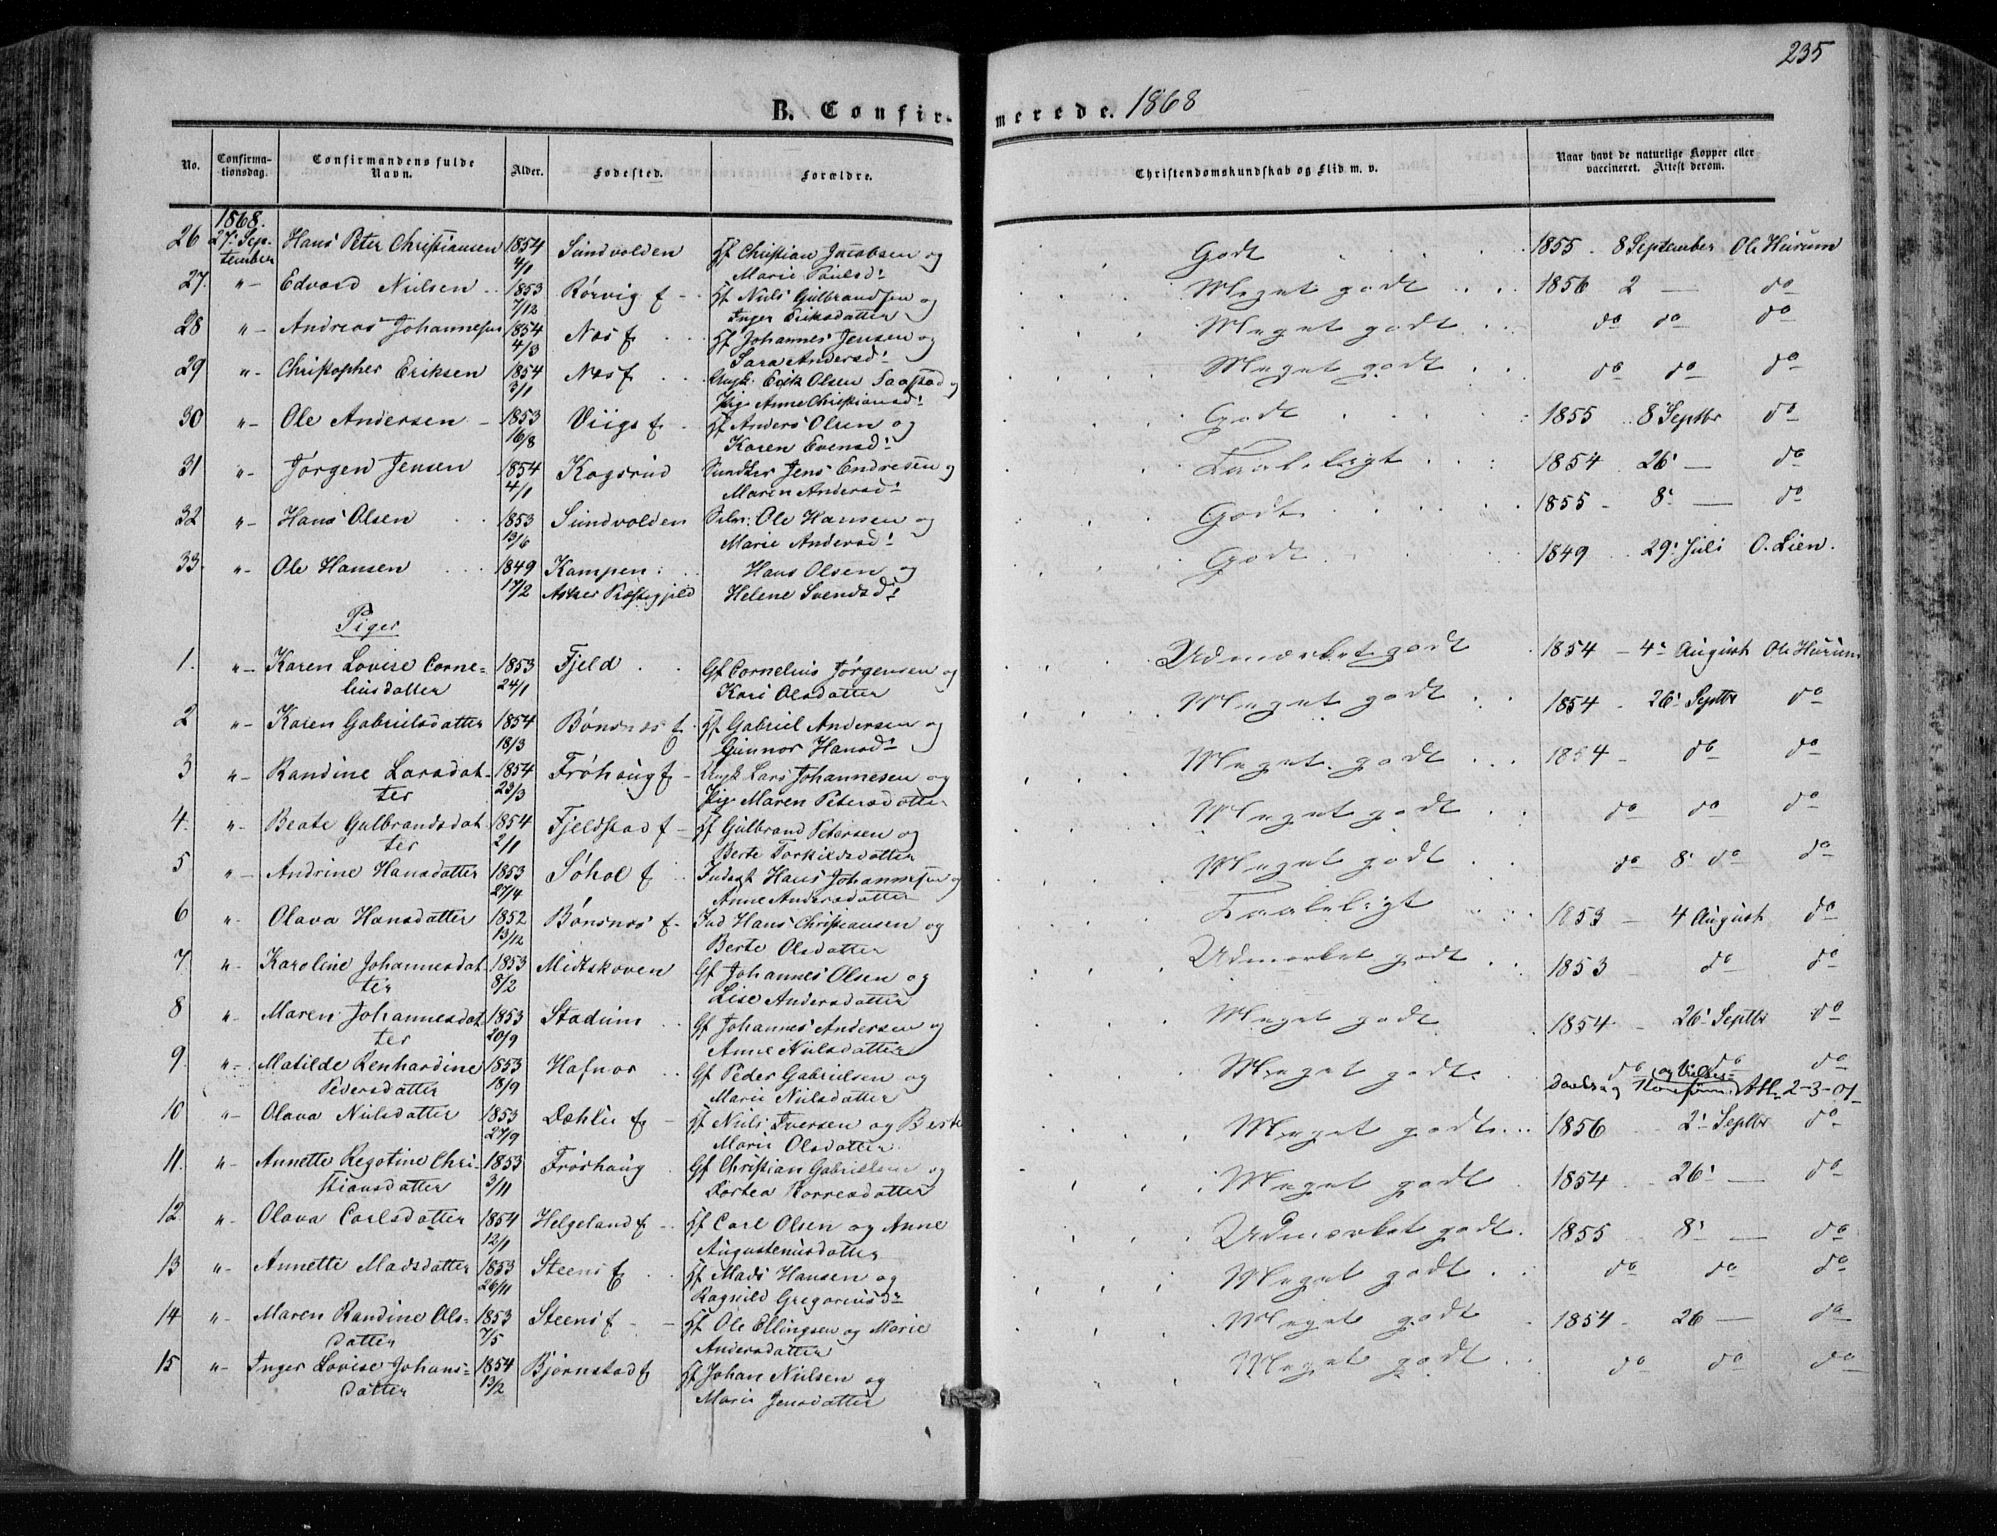 235
B. Confirmerede. 1868
No.
Confirmationsdag.
Confirmandens fulde Navn.
Alder.
Fødested.
Forældre.
Christendomskundskab og Flid m. v.
Naar havt de naturlige Kopper eller vaccineret. Attest derom.
1868.
26 27. September Hans Peter Christiansen 1854 4/1 Sundvolden Gf Christian Jacobsen og Marie Paulsd. Godt 1855 8 September Ole Hurum
27. "- Edvard Nielsen 1853 7/12 Rørvig f Hf Niels Gulbrandsen og Inger Eriksdatter Meget godt 1856 2 — do
28 "- Andreas Johannesen 1854 4/3 Næs f Hf Johannes Jensen og Sara Andersd. Meget godt do do do
29 "- Christopher Eriksen 1854 3/1 Næs f Ungk. Erik Olsen Saastad og Pige Anne Christiansd. Meget godt do do do
30 "- Ole Andersen 1853 16/8 Viigs f Hf Anders Olsen og Karen Evensd. Godt 1855 8 Septbr do
31 "- Jørgen Jensen 1854 4/1 Kogsrud Jens Endresen og Maren Andersd. Taaleligt 1854 26 — do
32 "- Hans Olsen 1853 13/6 Sundvolden Ole Hansen og Marie Andersd. Godt 1855 8 — do
33 "- Ole Hansen 1849 17/2 Kampen Asker Præstegjeld Hans Olsen og Helene Svendsd. Godt 1849 29 Juli O. Lien.
Piger
1. "- Karen Lovise Corneliusdatter 1853 24/1 Fjeld Gf Cornelius Jørgensen og Kari Olsdatter Udmærket godt 1854 4 August Ole Hurum
2 "- Karen Gabrielsdatter 1854 18/3 Bønsnæs f Hf Gabriel Andersen og Gunnor Hansd. Meget godt 1854 26 Septbr do
3 "- Randine Larsdatter 1854 23/3 Frøhaug f Ungk Lars Johannesen og Pige Maren Petersdatter Meget godt 1854 do do
4. "- Beate Gulbrandsdatter 1854 2/1 Fjeldstad f Hf Gulbrand Petersen og Berte Torkildsdatter Meget godt do do do
5 "- Andrine Hansdatter 1853 27/4 Søhol f Inds Hans Johannesen og Anne Andersdatter Meget godt do 8 do do
6 "- Olava Hansdatter 1852 13/12 Bønsnæs f Ind Hans Christiansen og Berte Olsdatter Taaleligt 1853 4 August do
7. "- Karoline Johannesdatter 1853 8/2 Midtskoven Gf Johannes Olsen og Lise Andersdatter Udmærket godt 1853 do do
8 "- Maren Johannesdatter 1853 20/9 Stadum Gf Johannes Andersen og Anne Nielsdatter Meget godt 1854 26 Septbr do
9 "- Matilde Renhardine Pedersdatter 1853 18/9 Hafnor Gf Peder Gabrielsen og Marie Nielsdatter Meget godt do do do
Att. 2-3-01
10 "- Olava Nielsdatter 1853 27/9 Dæhlie f Hf Niels Iversen og Berte Marie Olsdatter Meget godt 1856 2 Septbr do
11. "- Annette Regotine Christiansdatter 1853 3/11 Frøshaug Gf Christian Gabrielsen og Dortea Korresdatter Meget godt 1854 26 — do
12. "- Olava Carlsdatter 1854 12/1 Helgeland f Hf Carl Olsen og Anne Augustenusdatter Udmærket godt 1855 8 — do
13 "- Annette Madsdatter 1853 26/11 Steens f Hf Mads Hansen og Ragnild Gregoriusd. Meget godt do do do
14 "- Maren Randine Olsdatter 1853 7/5 Steens f Hf Ole Ellingsen og Marie Andersdatter Meget godt 1854 26 — do
15 "- Inger Lovise Johansdatter 1854 13/2 Bjørnstad f Hf Johan Nielsen og Marie Jensdatter Meget godt do do do